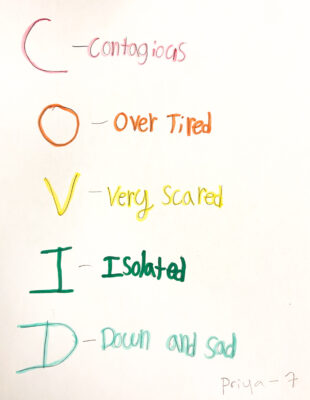 C - Contagious
O - Over Tired
V - Very Scared
I - Isolated
D - Down and sad
Priya - 7